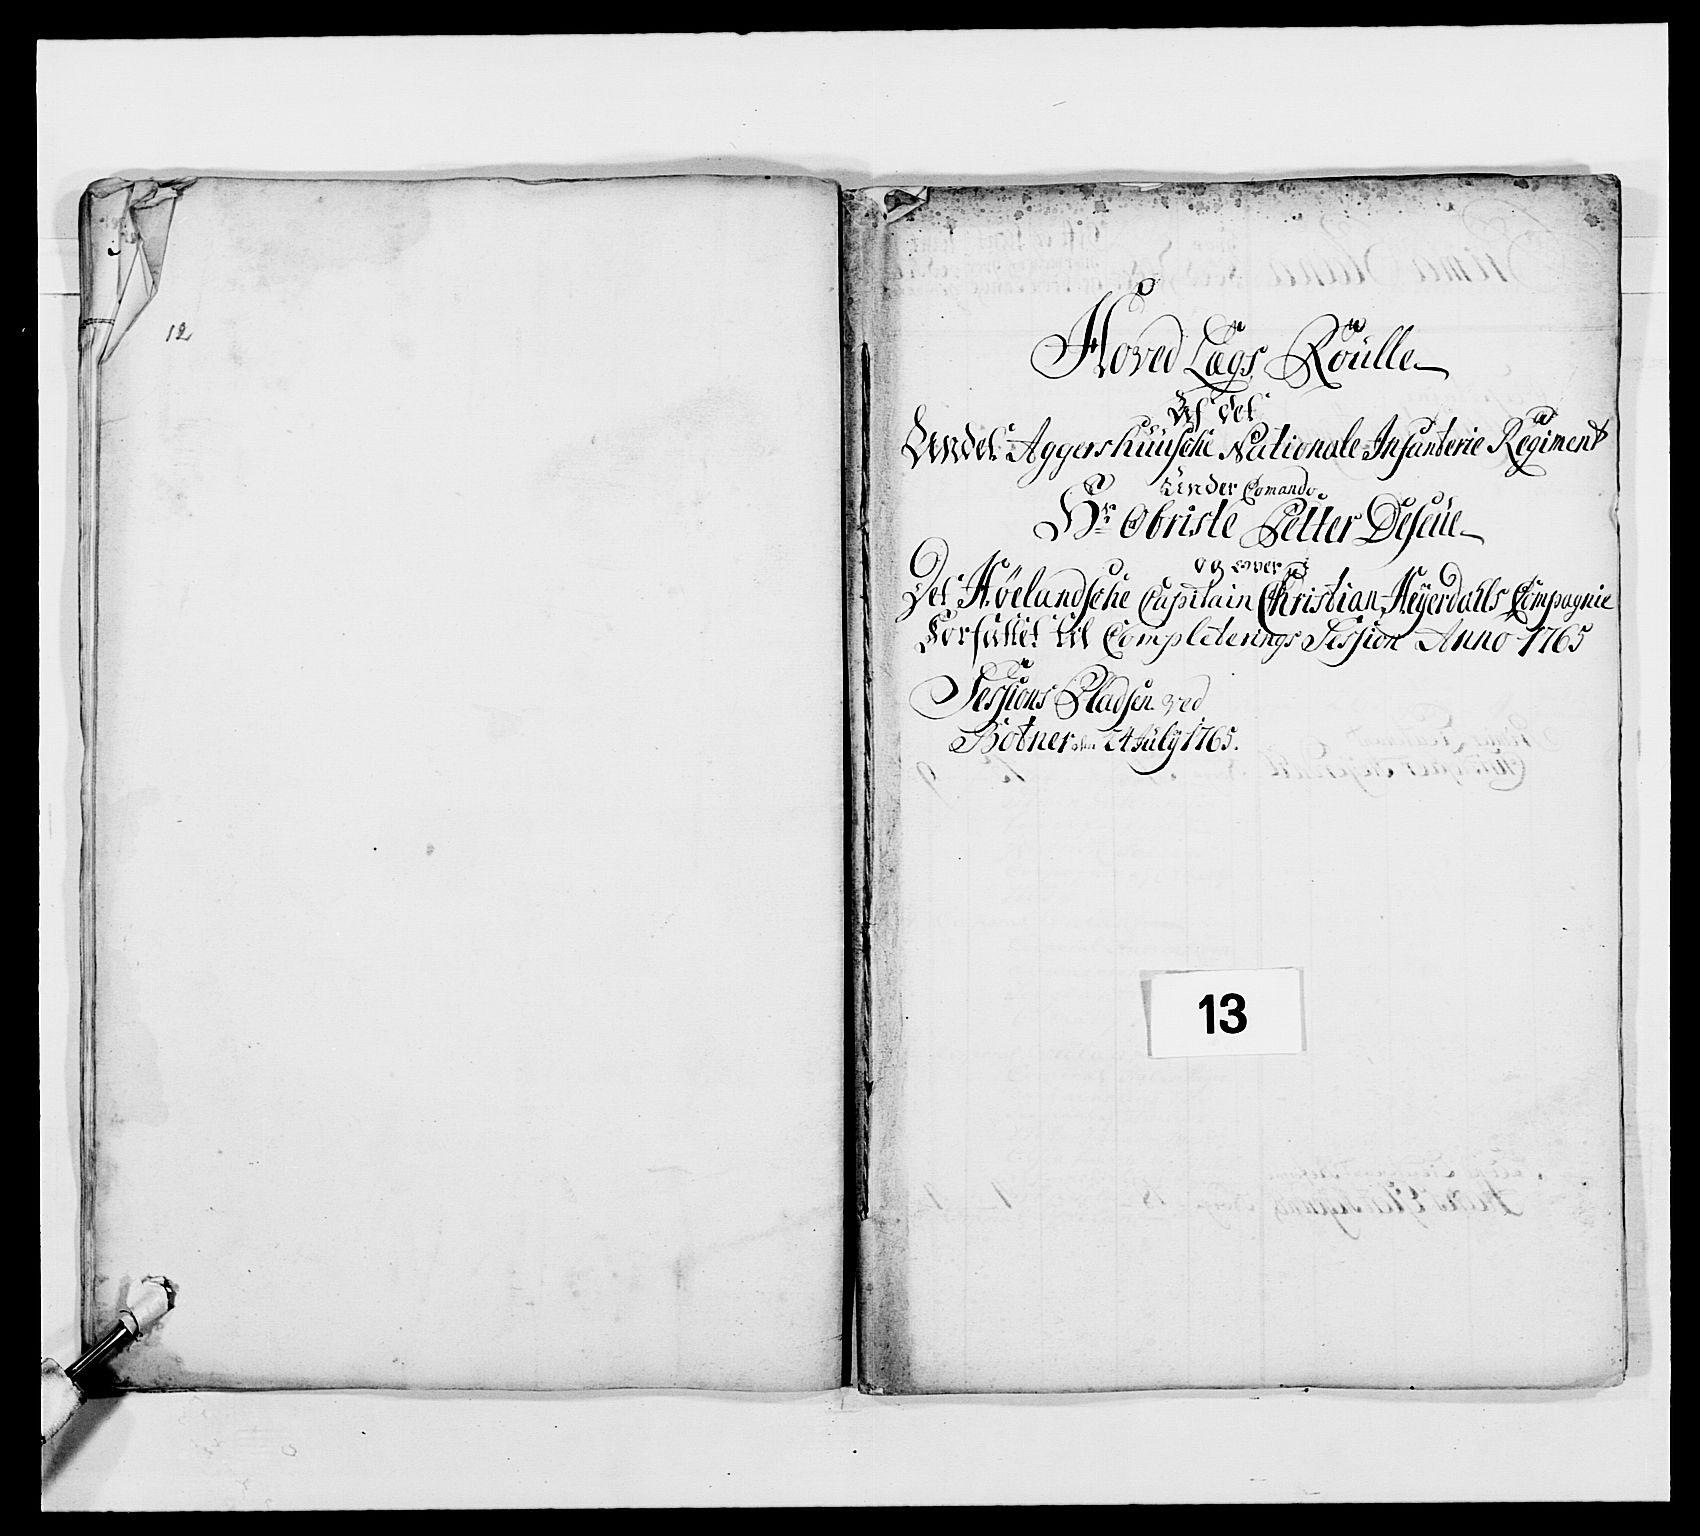 12
Hoved Lægs Roülle
Af det
Andet Aggershuusche Nationale Infanterie Regiment
Under Comando
Hr Obriste Petter Deseüe
og over
Det Høelandsche Capitain Christian Heyerdalls Compagnie
Forfattet til Completerings Session Anno 1765
Sessions Pladsen ved
Botner den 24 July 1765.
13